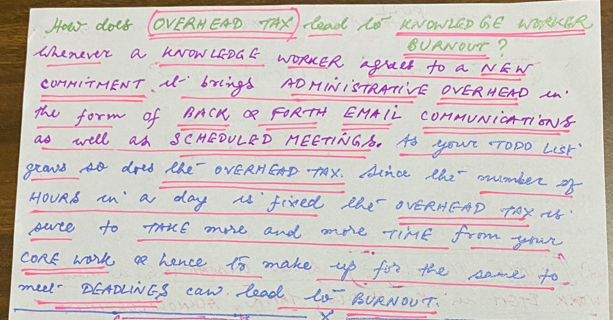 How does OVERHEAD TAX lead to KNOWLEDGE WORKER
BURNOUT?
Whenever a KNOWLEDGE WORKER agrees to a NEW
COMMITMENT, it brings ADMINISTRATIVE OVERHEAD in
the form of BACK & FORTH EMAIL COMMUNICATIONS
as well as SCHEDULED MEETINGS. As your TODO LIST
grows so does the OVERHEAD TAX. Since the number of
HOURS in a day is fixed the OVERHEAD TAX is
sure to TAKE more and more TIME from your
CORE WORK & hence to make up for the same to
meet DEADLINES can lead to BURNOUT.